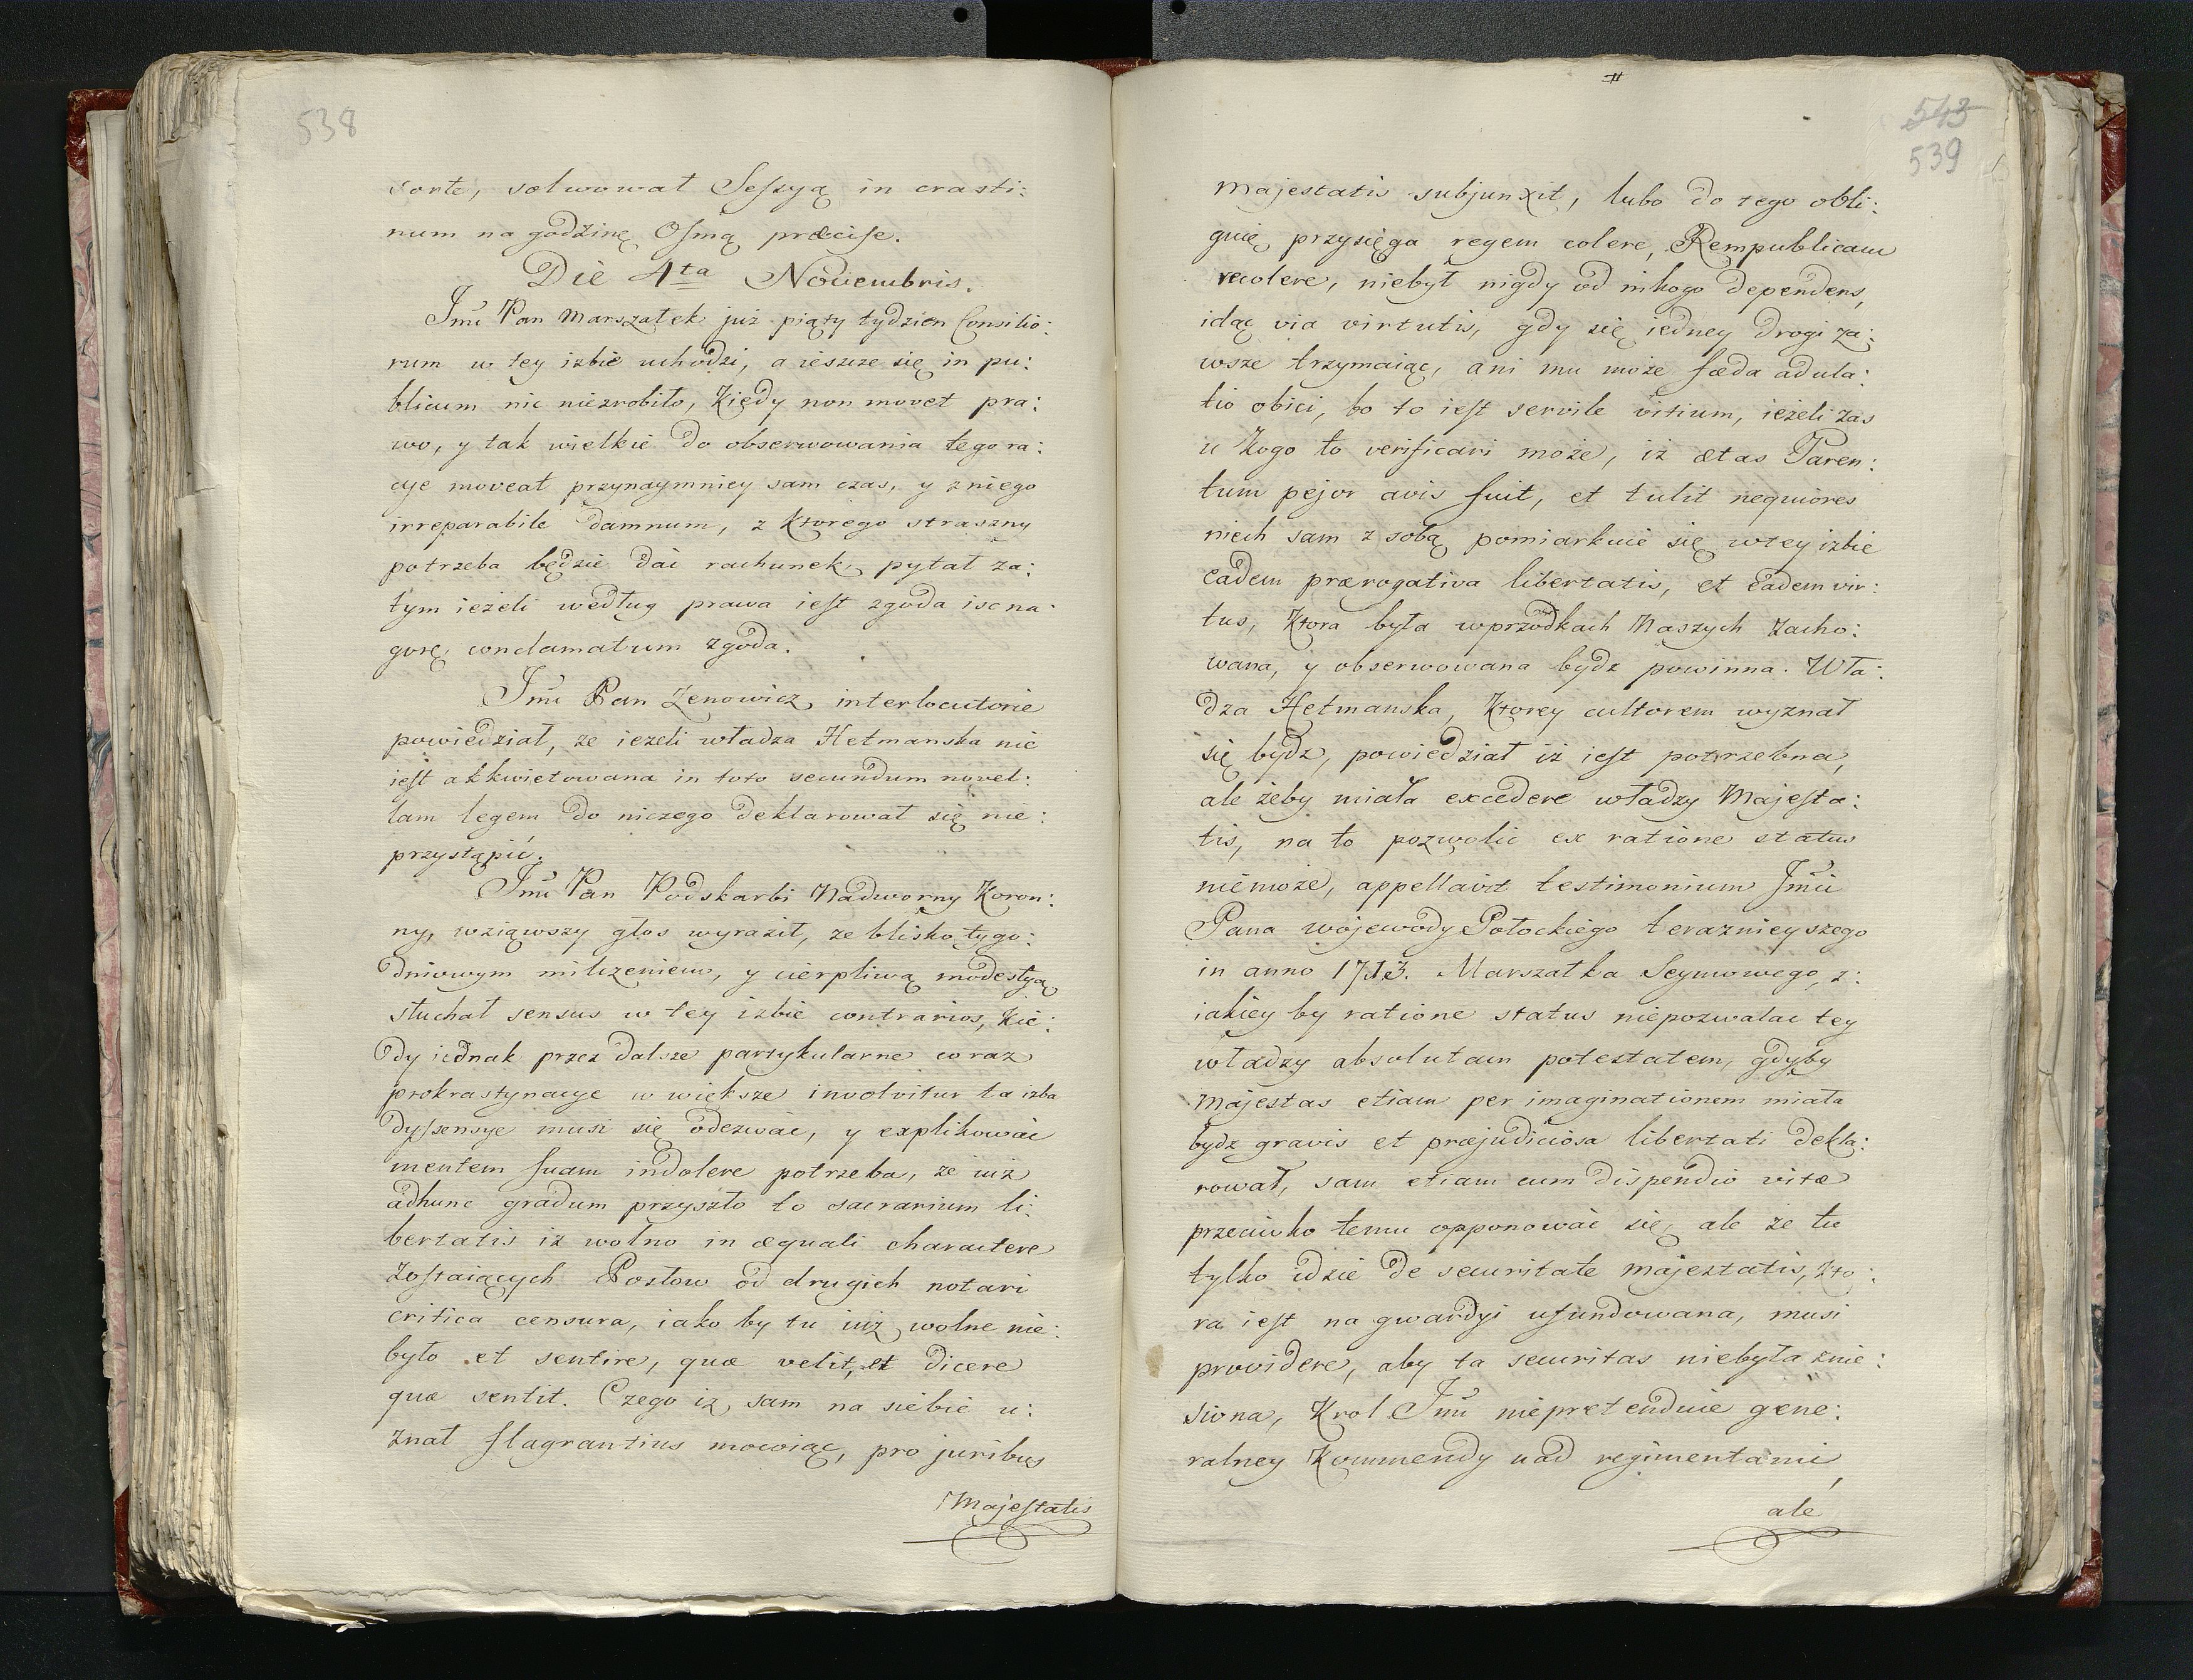 538
sorte, solwował Sessyą in crasti:
num na godzinę Osmą præcise.
Die 4ta Novembris.
Jmć Pan Marszałek już piąty tydzien Consilio:
rum w tey izbie uchodzi, a ieszcze się in pu:
blicum nic niezrobiło, Kiędy non movet pra:
wo, y tak wielkie do obserwowania tego ra:
cye moveat przynaymniey sam czas, y z niego
irreparabile damnum, z ktorego straszny
potrzeba będzie dać rachunek, pytał za:
tym ieżeli według prawa iest zgoda isc na
gorę, conclamatum zgoda.
Jmć Pan Zenowicz interlocutorie
powiedział, ze ieżeli władza Hetmanska nie
iest akkwietowana in toto secundum novel:
lam legem do niczego deklarował się nie:
przystąpić.
Jmć Pan Podskarbi Nadworny Koron:
ny, wziąwszy głos wyraził, ze blisko tygo:
dniowym milczeniem, y cierpliwą modestyą
słuchał sensus w tey izbie contrarios, Kie:
dy iednak przez dalsze partykularne coraz
prokrastynacye w większe involvitur ta izba
dyssensye musi się odezwać, y explikować
mentem suam indolere potrzeba, ze iuż
adhunc gradum przyszło to sacrarium li:
bertatis iż wolno in æquali charactere
Zostaiących Posłow od drugich notari
critica censura, iako by tu iuż wolne nie:
było et sentire, quæ velit, et dicere
quæ sentit. Czego iż sam na siebie u:
znał flagrantius mowiąc, pro juribus
Majestatis
#
543
539
Majestatis subjunxit, lubo do tego obli:
guię przysięga regem colere, Rempublicam
recolere, niebył nigdy od nikogo dependens,
idąc via virtutis, gdy się iedney drogi za:
wsze trzymaiąc, ani mu może fæda adula:
tio obici, bo to iest servile vitium, ieżeli zas
u Kogo to verificari może, iż ætas Paren:
tum pejor avis fuit, et tulit nequiores
niech sam z sobą pomiarkuie się w tey izbie
eadem prærogativa libertatis, et eadem vir:
tus, Ktora była wprzodkach Naszych Zacho:
wana, y obserwowana bydz powinna. Wła:
dza Hetmanska, Ktorey cultorem wyznał
się bydz, powiedział iż iest potrzebna,
ale żeby miała excedere władzy Majesta:
tis, na to pozwolic ex ratione status
niemoże, appellavit testimonium Jmći
Pana wojewody Potockiego teraznieyszego
in anno 1713. Marszałka Seymowego, z:
iakiey by ratione status niepozwalac tey
władzy absolutam potestatem, gdyby
Majestas etiam per imaginationem miała
bydz gravis et præjudiciosa libertati dekla:
rował, sam etiam cum dispendio vitæ
przeciwko temu opponować się, ale że tu
tylko idzie de securitate majestatis, kto:
ra iest na gwardyi ufundowana, musi
providere, aby ta securitas niebyła znie:
siona, Krol Jmć niepretenduie gene:
ralney Kommendy nad regimentami,
ale